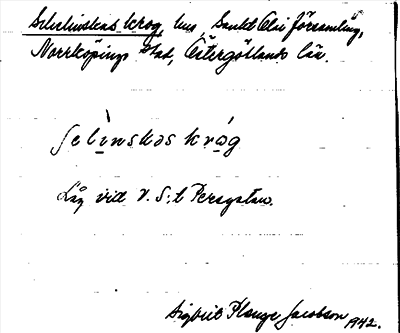 Schelinskas krog, hus, Sankt Olai församling,
Norrköpings stad, Östergötlands län.
ʃelinskas krog
Låg vid V. S:t Persgatan.
Sigbrit Plange Jacobson 1942.